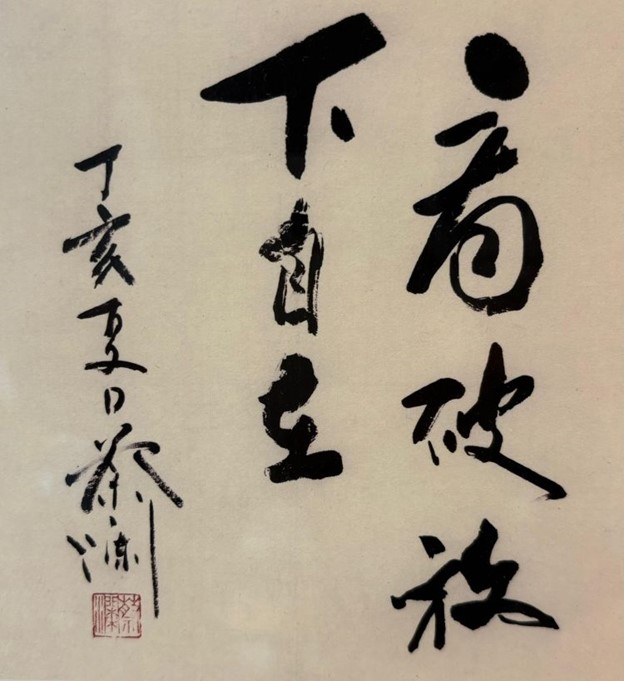 看破放
下自在
丁亥夏日蔡瀾
蔡瀾